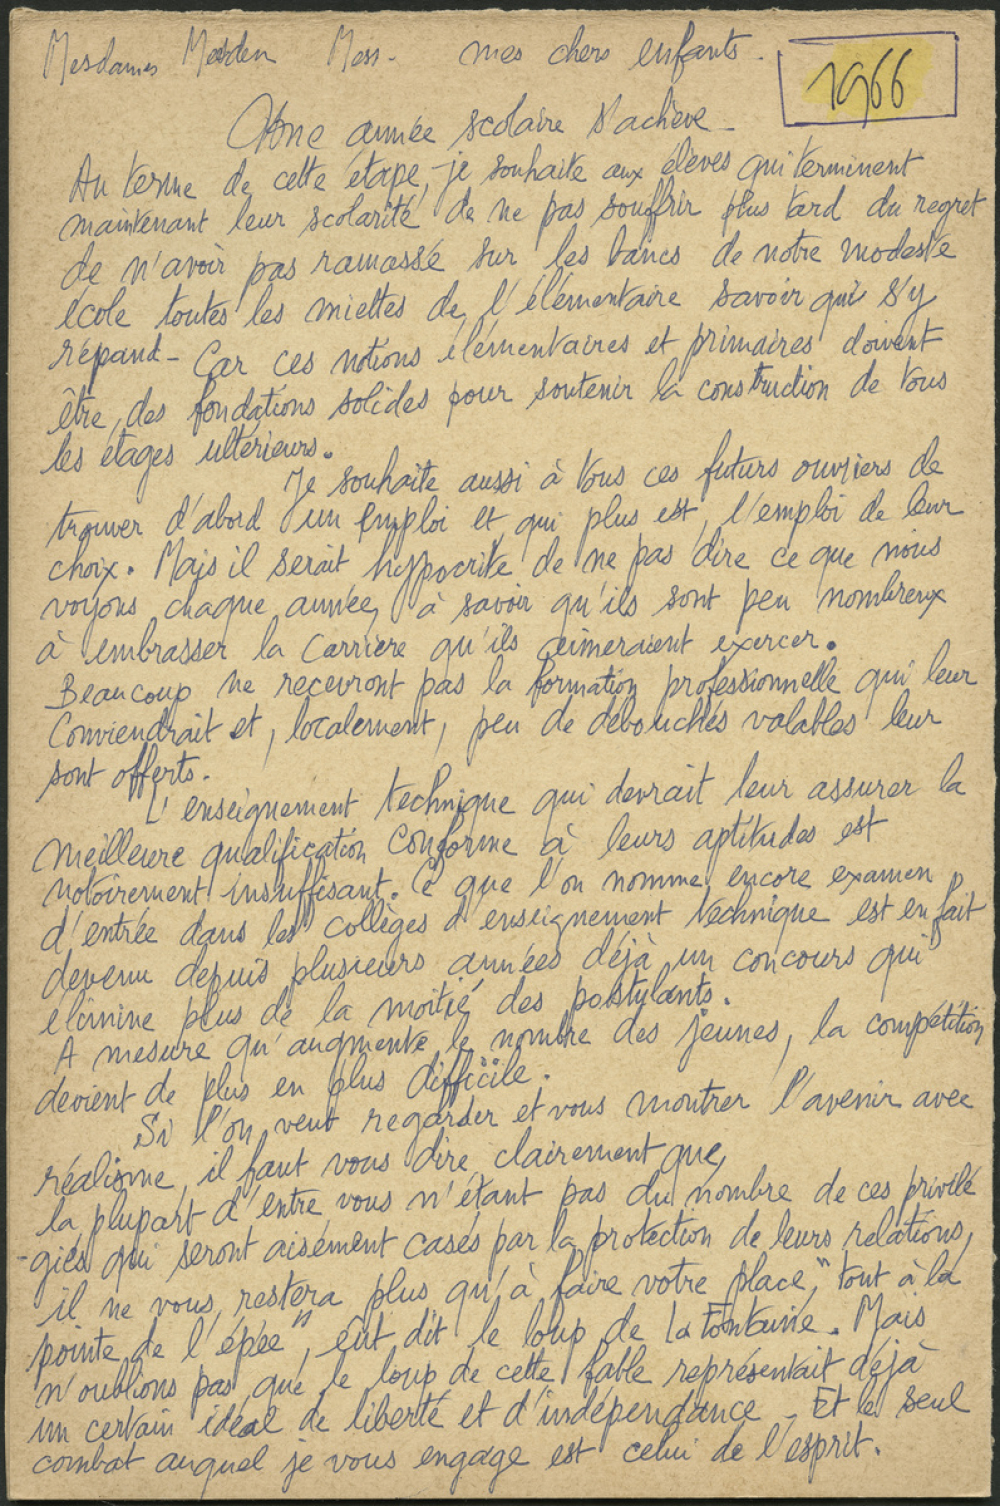 Mesdames Mesden Mess. mes chers enfants.
1966
Une année scolaire s'achève -
Au terme de cette étape, je souhaite aux élèves qui terminent
maintenant leur scolarité de ne pas souffrir plus tard du regret
de n'avoir pas ramassé sur les bancs de notre modeste
école toutes les miettes de l'élémentaire savoir qui s'y
répand - Car ces notions élémentaires et primaires doivent
être des fondations solides pour soutenir la construction de tous
les étages ultérieurs.
Je souhaite aussi à tous ces futurs ouvriers de
trouver d'abord un emploi et qui plus est, l'emploi de leur
choix. Mais il serait hyppocrite de ne pas dire ce que nous
voyons chaque année, à savoir qu'ils sont peu nombreux
à embrasser la carrière qu'ils aimeraient exercer.
Beaucoup ne recevront pas la formation professionnelle qui leur
conviendrait et, localement, peu de débouchés valables leur
sont offerts.
L'enseignement technique qui devrait leur assurer la
meilleure qualification conforme à leurs aptitudes est
notoirement insuffisant. Ce que l'on nomme encore examen
d'entrée dans les collèges d'enseignement technique est en fait
devenu depuis plusieurs années déjà un concours qui
élimine plus de la moitié des postulants.
A mesure qu'augmente le nombre des jeunes, la compétition
devient de plus en plus difficile.
Si l'on veut regarder et vous montrer l'avenir avec
réalisme, il faut vous dire clairement que,
la plupart d'entre vous n'étant pas du nombre de ces privilé
-giés qui seront aisément casés par la protection de leurs relations,
il ne vous restera plus qu'à faire votre place, "tout à la
pointe de l'épée", eût dit le loup de la Fontaine. Mais
n'oublions pas que le loup de cette fable représentait déjà
un certain idéal de liberté et d'indépendance - Et le seul
combat auquel je vous engage est celui de l'esprit.